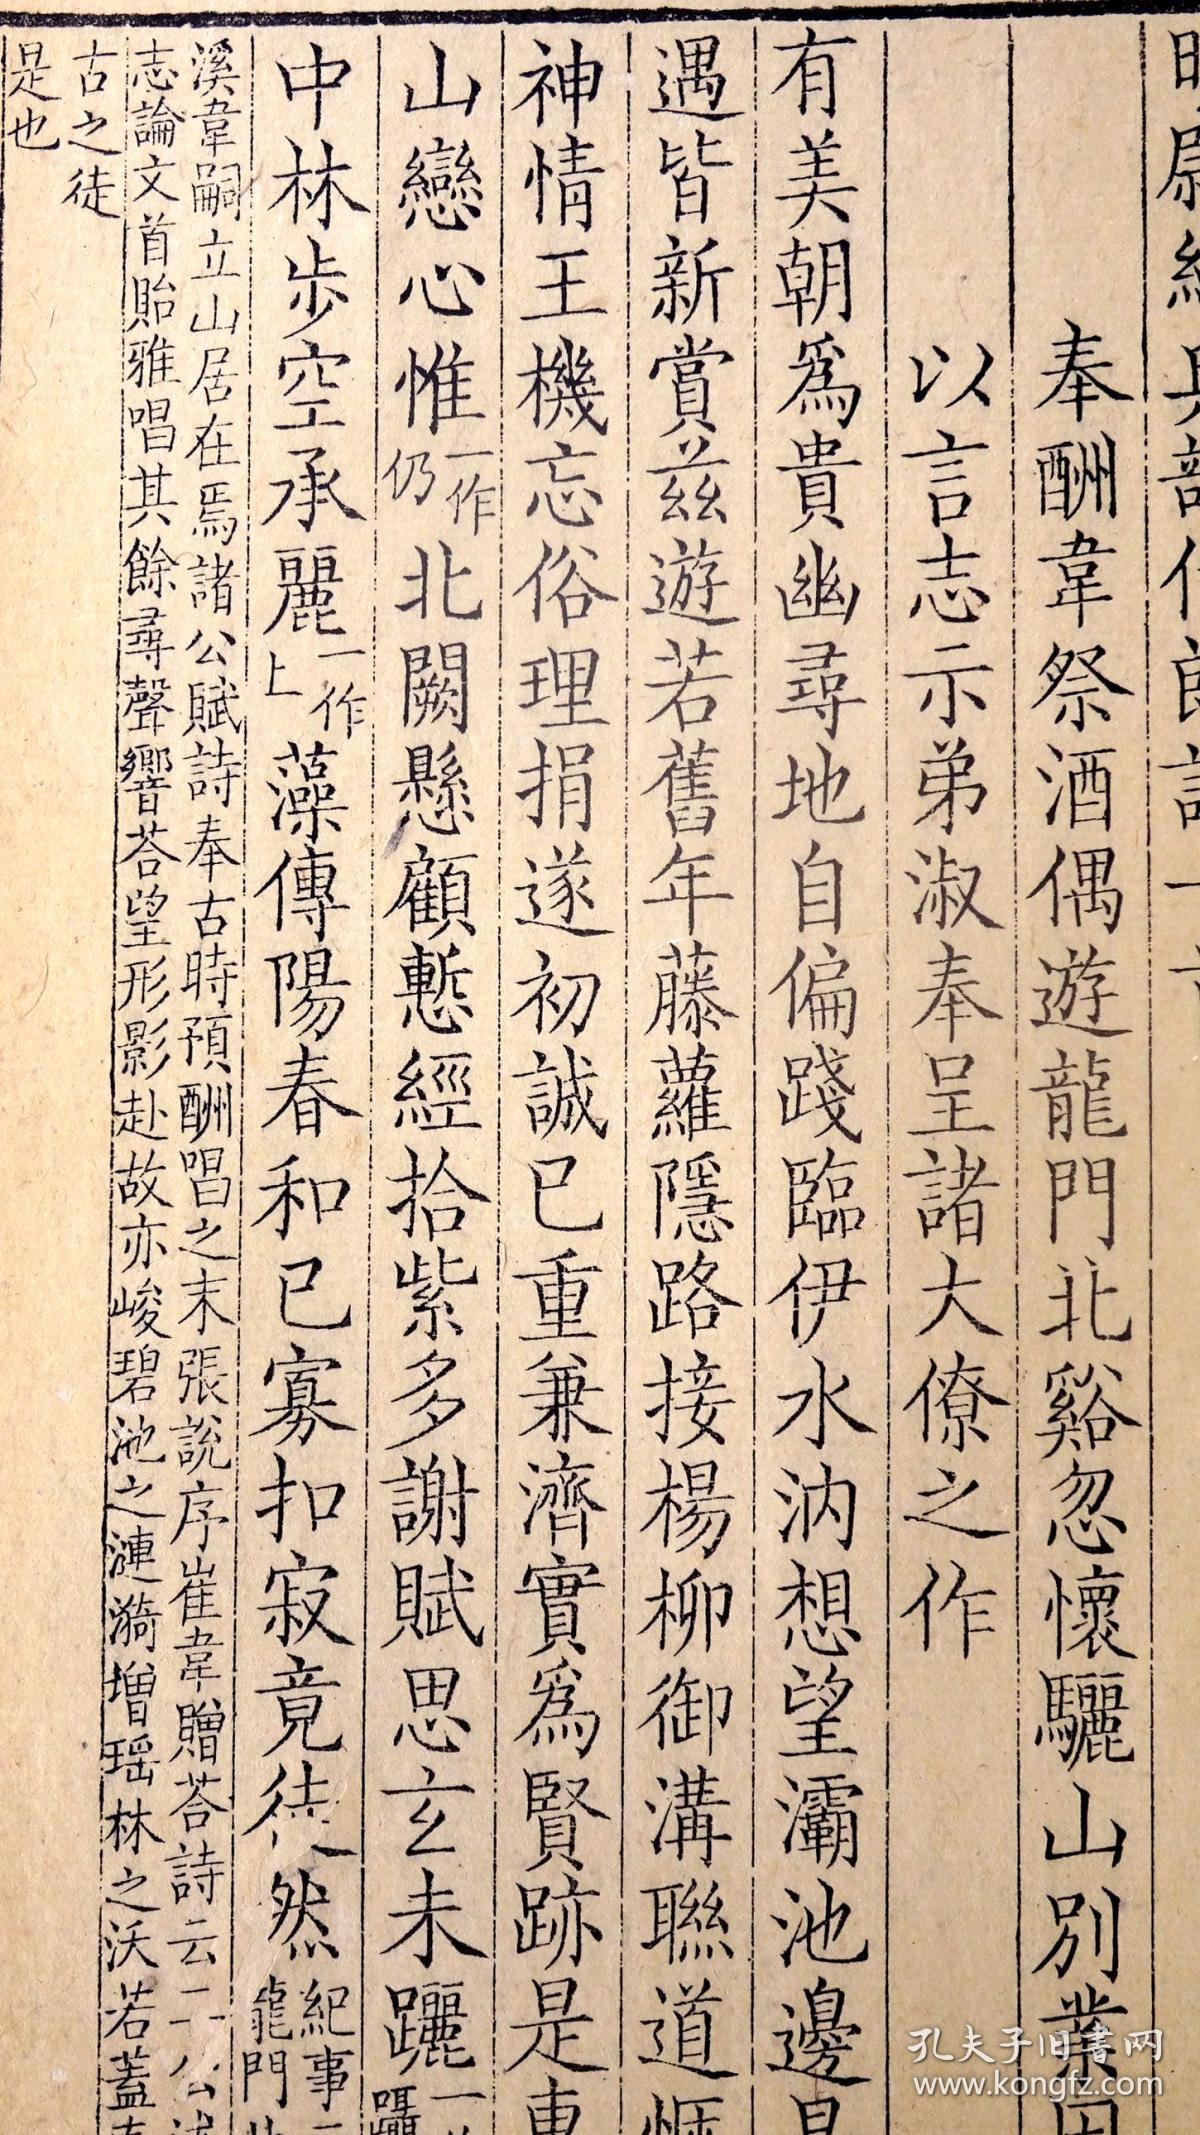 尉經兵部侍郎
奉酬韋祭酒偶遊龍門北谿忽懷驪山別業因
以言志示弟淑奉呈諸大僚之作
有美朝爲貴幽尋地自偏踐臨伊水汭想望灞池邊
遇皆新賞茲遊若舊年藤蘿隱路接楊柳御溝聯道
神情王機忘俗理捐遂初誠已重兼濟實爲賢跡是東
山戀心惟一作仍北闕懸顧慙經拾紫多謝賦思玄未躧一
中林步空承麗一作上藻傳陽春和已寡扣寂竟徒然紀事
龍門
溪韋嗣立山居在焉諸公賦詩奉古時預酬唱之末張說序崔韋贈荅詩云二公
志論文首貽雅唱其餘尋聲響荅望形影赴故亦峻碧池之漣漪增瑶林之沃若蓋
古之徒
是也
孔夫子旧书网
www.kongfz.com